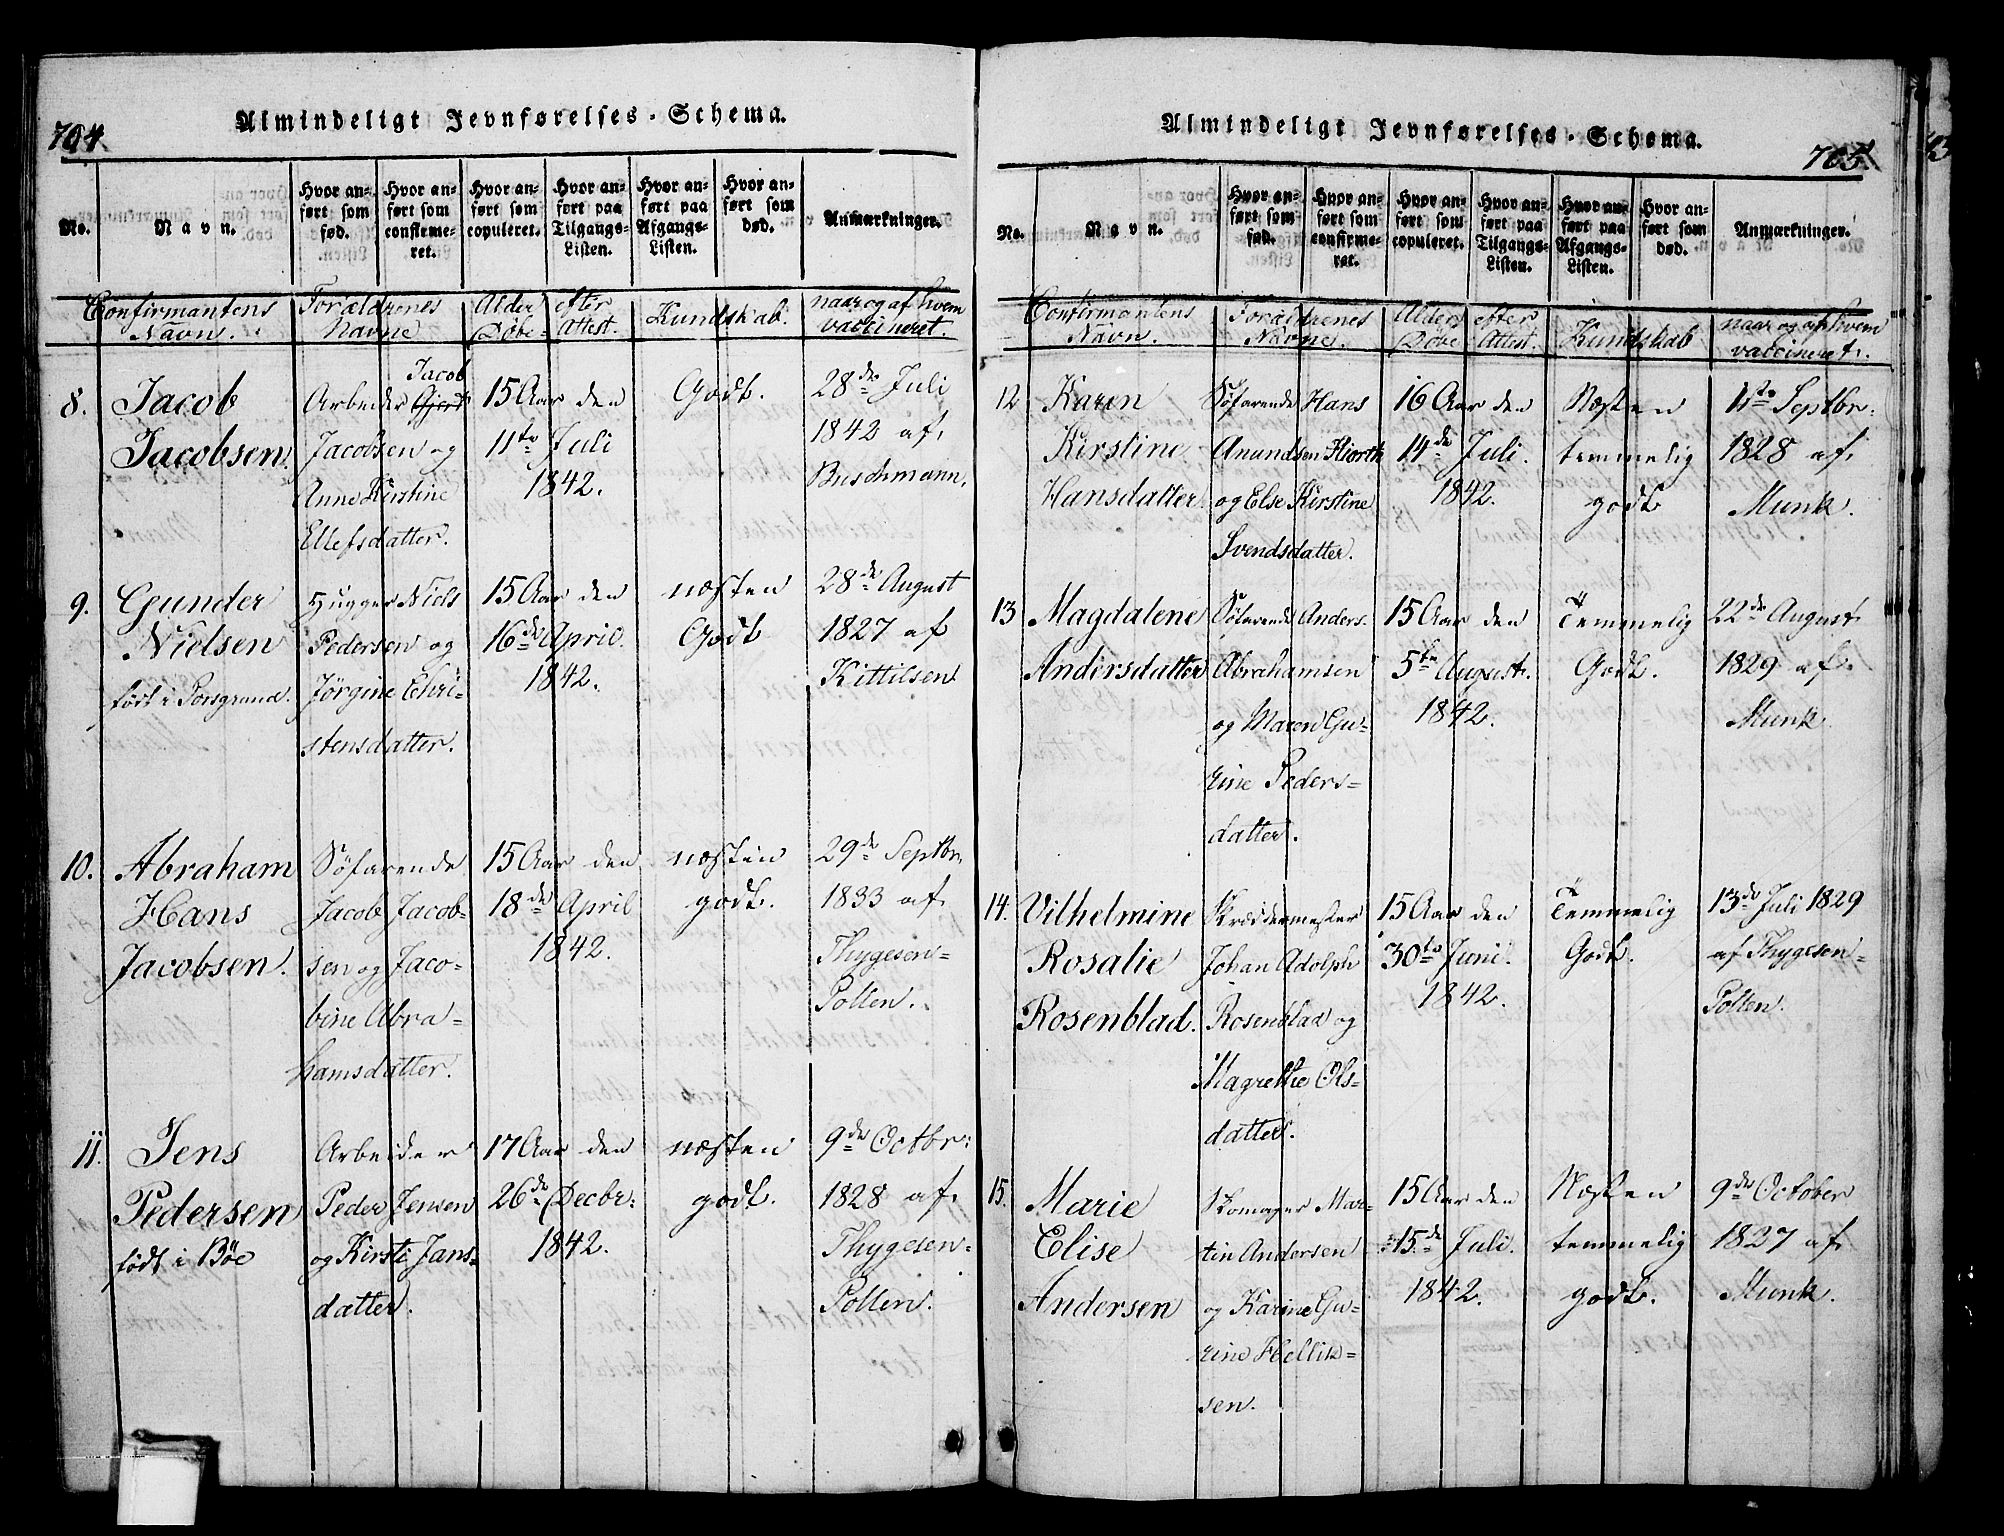 704.
Almindeligt Jevnførelses-Schema.
No.
Navn.
Hvor anført som fød.
Hvor anført som confirmeret.
Hvor anført som copuleret.
Hvor anført paa Tilgangs-Listen.
Hvor anført paa Afgangs-Listen.
Hvor anført som død.
Anmærkninger.
Confirmantens Navn.
Forældrenes Navne
Alder efter Døbe-Attest.
Kundskab.
naar og af hvem vaccineret.
8.
Jacob
Jacobsen.
Jacob
Arbeider Gjert
Jacobsen og
Anne Kirstine
Ellefsdatter.
15 Aar den
11te Juli
1842.
Godt.
28de Juli
1842 af
Buschmann.
9.
Gunder
Nielsen
født i Porsgrund.
Hugger Niels
Pedersen og
Jørgine Chri-
stensdatter.
15 Aar den
16de April.
1842.
næsten
Godt
28de August
1827 af
Kittilsen
10.
Abraham
Hans
Jacobsen.
Søfarende
Jacob Jacob-
sen og Jaco-
bine Abra-
hamsdatter.
15 Aar den
18de April
1842.
næsten
godt.
29de Septbr.
1833 af
Thygesen-
Polten.
11.
Jens
Pedersen
født i Bøe
Arbeider
Peder Jensen
og Kirsti Jans-
datter.
17 Aar den
26de Decbr:
1842.
næsten
godt.
9de Octbr:
1828 af
Thygesen-
Polten.
705.
Almindeligt Jevnførelses-Schema.
No.
Navn.
Hvor anført som fød.
Hvor anført som confirmeret.
Hvor anført som copuleret.
Hvor anført paa Tilgangs-Listen.
Hvor anført paa Afgangs-Listen.
Hvor anført som død.
Anmærkninger.
Confirmantens Navn.
Forældrenes Navne.
Alder efter Døbe-Attest.
Kundskab
naar og af hvem vaccineret.
12
Karen
Kirstine
Hansdatter.
Søfarende Hans
Anundsen Hiorth
og Else Kirstine
Svendsdatter.
16 Aar den
14de Juli.
1842.
Næsten
temmelig
godt
11te Septbr:
1828 af
Munk.
13
Magdalene
Andersdatter
Søfarende Anders
Abrahamsen
og Maren Gu-
rine Peders-
datter.
15 Aar den
5te August.
1842.
Temmelig
Godt.
22de August
1829 af
Munk
14.
Vilhelmine
Rosalie
Rosenblad.
Skræddermester
Johan Adolph
Rosenblad og
Magrethe Ols-
datter.
15 Aar den
30te Juni.
1842.
Temmelig
Godt.
13de Juli 1829
af Thygesen-
Polten.
15.
Marie
Elise
Andersen
Skomager Mar-
tin Andersen
og Karine Gu-
rine Hellik-
sen.
15 Aar den
15.de Juli.
1842.
Næsten
temmelig
godt.
9de October
1827 af
Munk.